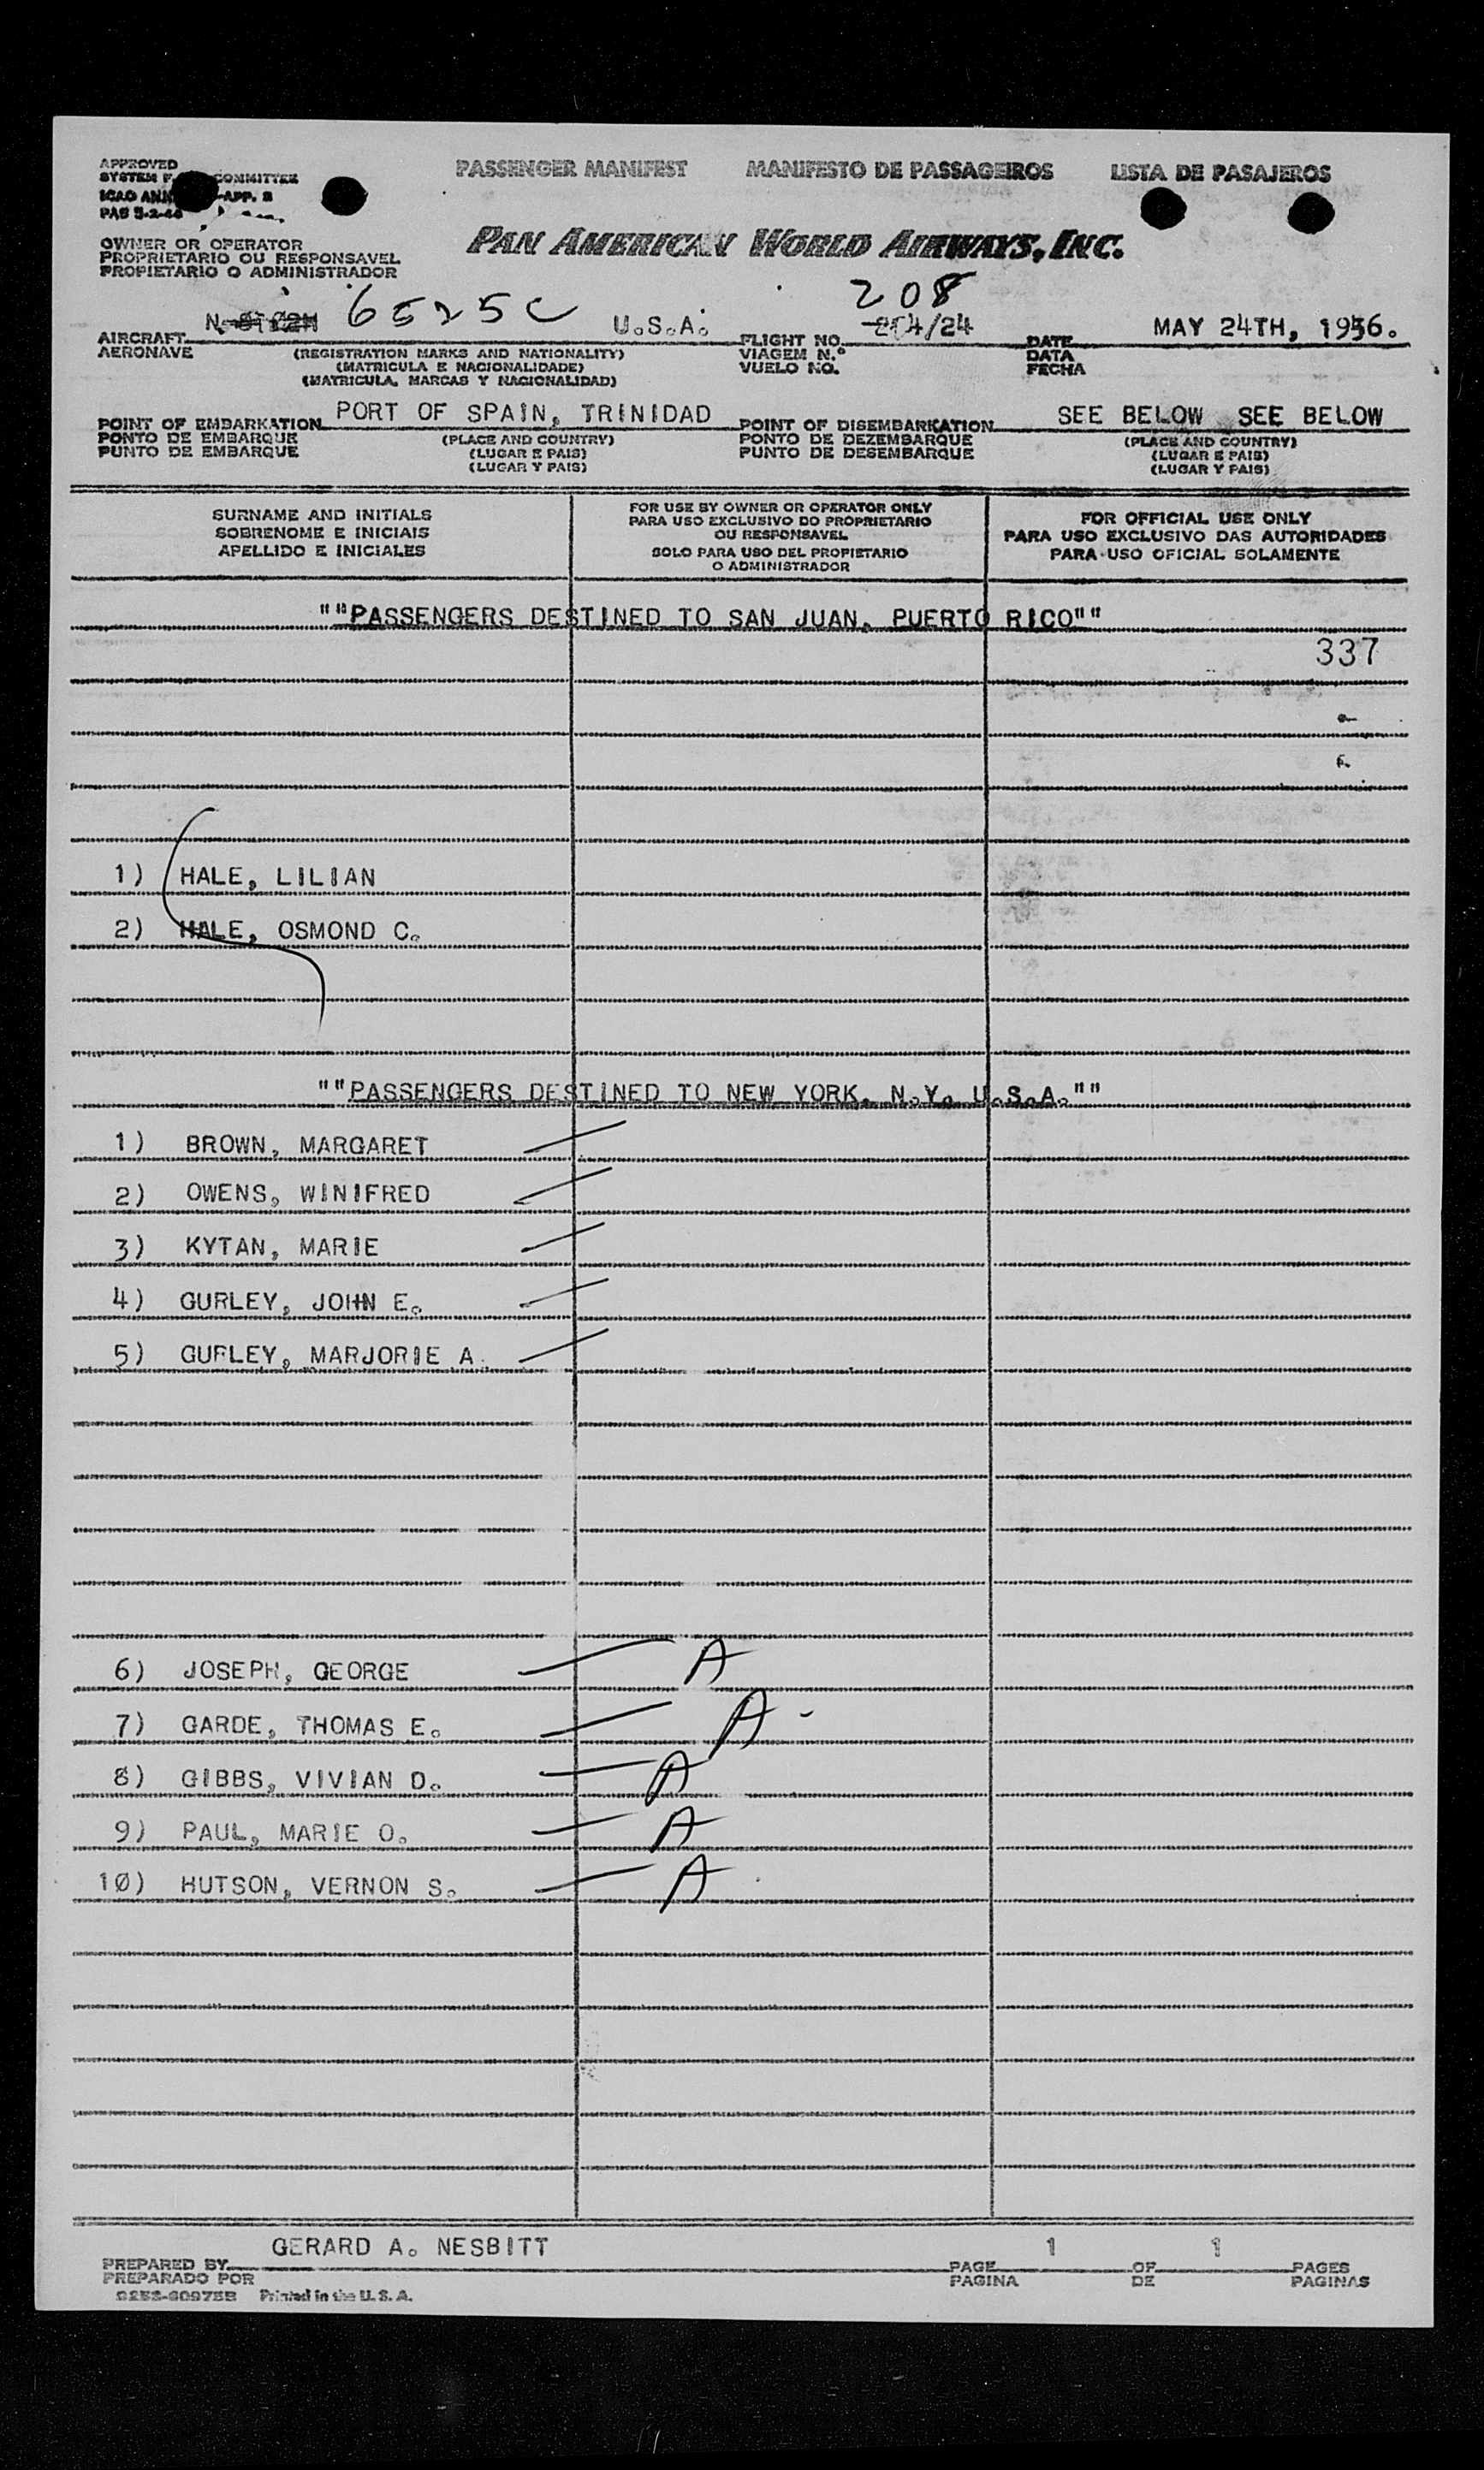 APPROVED
SYSTEM COMMITTEE
ICAO APP. 2
PAS
PASSENGER MANIFEST MANIFESTO DE PASSAGEIROS LISTA DE PASAJEROS
PAN AMERICAN WORLD AIRWAYS, INC.
OWNER OR OPERATOR
PROPRIETARIO OU RESPONSAVEL
PROPIETARIO O ADMINISTRADOR
208
AIRCRAFT N 6525C U.S.A. FLIGHT NO. /24 DATE MAY 24TH, 1956.
AERONAVE (REGISTRATION MARKS AND NATIONALITY) VIAGEM N.º DATA
(MATRICULA E NACIONALIDADE) VUELO NO. FECHA
(MATRICULA, MARCAS Y NACIONALIDAD)
POINT OF EMBARKATION PORT OF SPAIN, TRINIDAD POINT OF DISEMBARKATION SEE BELOW SEE BELOW
PONTO DE EMBARQUE (PLACE AND COUNTRY) PONTO DE DEZEMBARQUE (PLACE AND COUNTRY)
PUNTO DE EMBARQUE (LUGAR E PAIS) PUNTO DE DESEMBARQUE (LUGAR E PAIS)
(LUGAR Y PAIS) (LUGAR Y PAIS)
SURNAME AND INITIALS
SOBRENOME E INICIAIS
APELLIDO E INICIALES
FOR USE BY OWNER OR OPERATOR ONLY
PARA USO EXCLUSIVO DO PROPRIETARIO
OU RESPONSAVEL
SOLO PARA USO DEL PROPIETARIO
O ADMINISTRADOR
FOR OFFICIAL USE ONLY
PARA USO EXCLUSIVO DAS AUTORIDADES
PARA USO OFICIAL SOLAMENTE
""PASSENGERS DESTINED TO SAN JUAN, PUERTO RICO""
337
1) HALE, LILIAN
2) HALE, OSMOND C.
""PASSENGERS DESTINED TO NEW YORK, N.Y. U.S.A.""
1) BROWN, MARGARET
2) OWENS, WINIFRED
3) KYTAN, MARIE
4) GURLEY, JOHN E.
5) GURLEY, MARJORIE A.
6) JOSEPH, GEORGE A
7) GARDE, THOMAS E. A
8) GIBBS, VIVIAN D. A
9) PAUL, MARIE O. A
10) HUTSON, VERNON S. A
PREPARED BY GERARD A. NESBITT PAGE 1 OF 1 PAGES
PREPARADO POR PAGINA DE PAGINAS
Printed in the U.S.A.